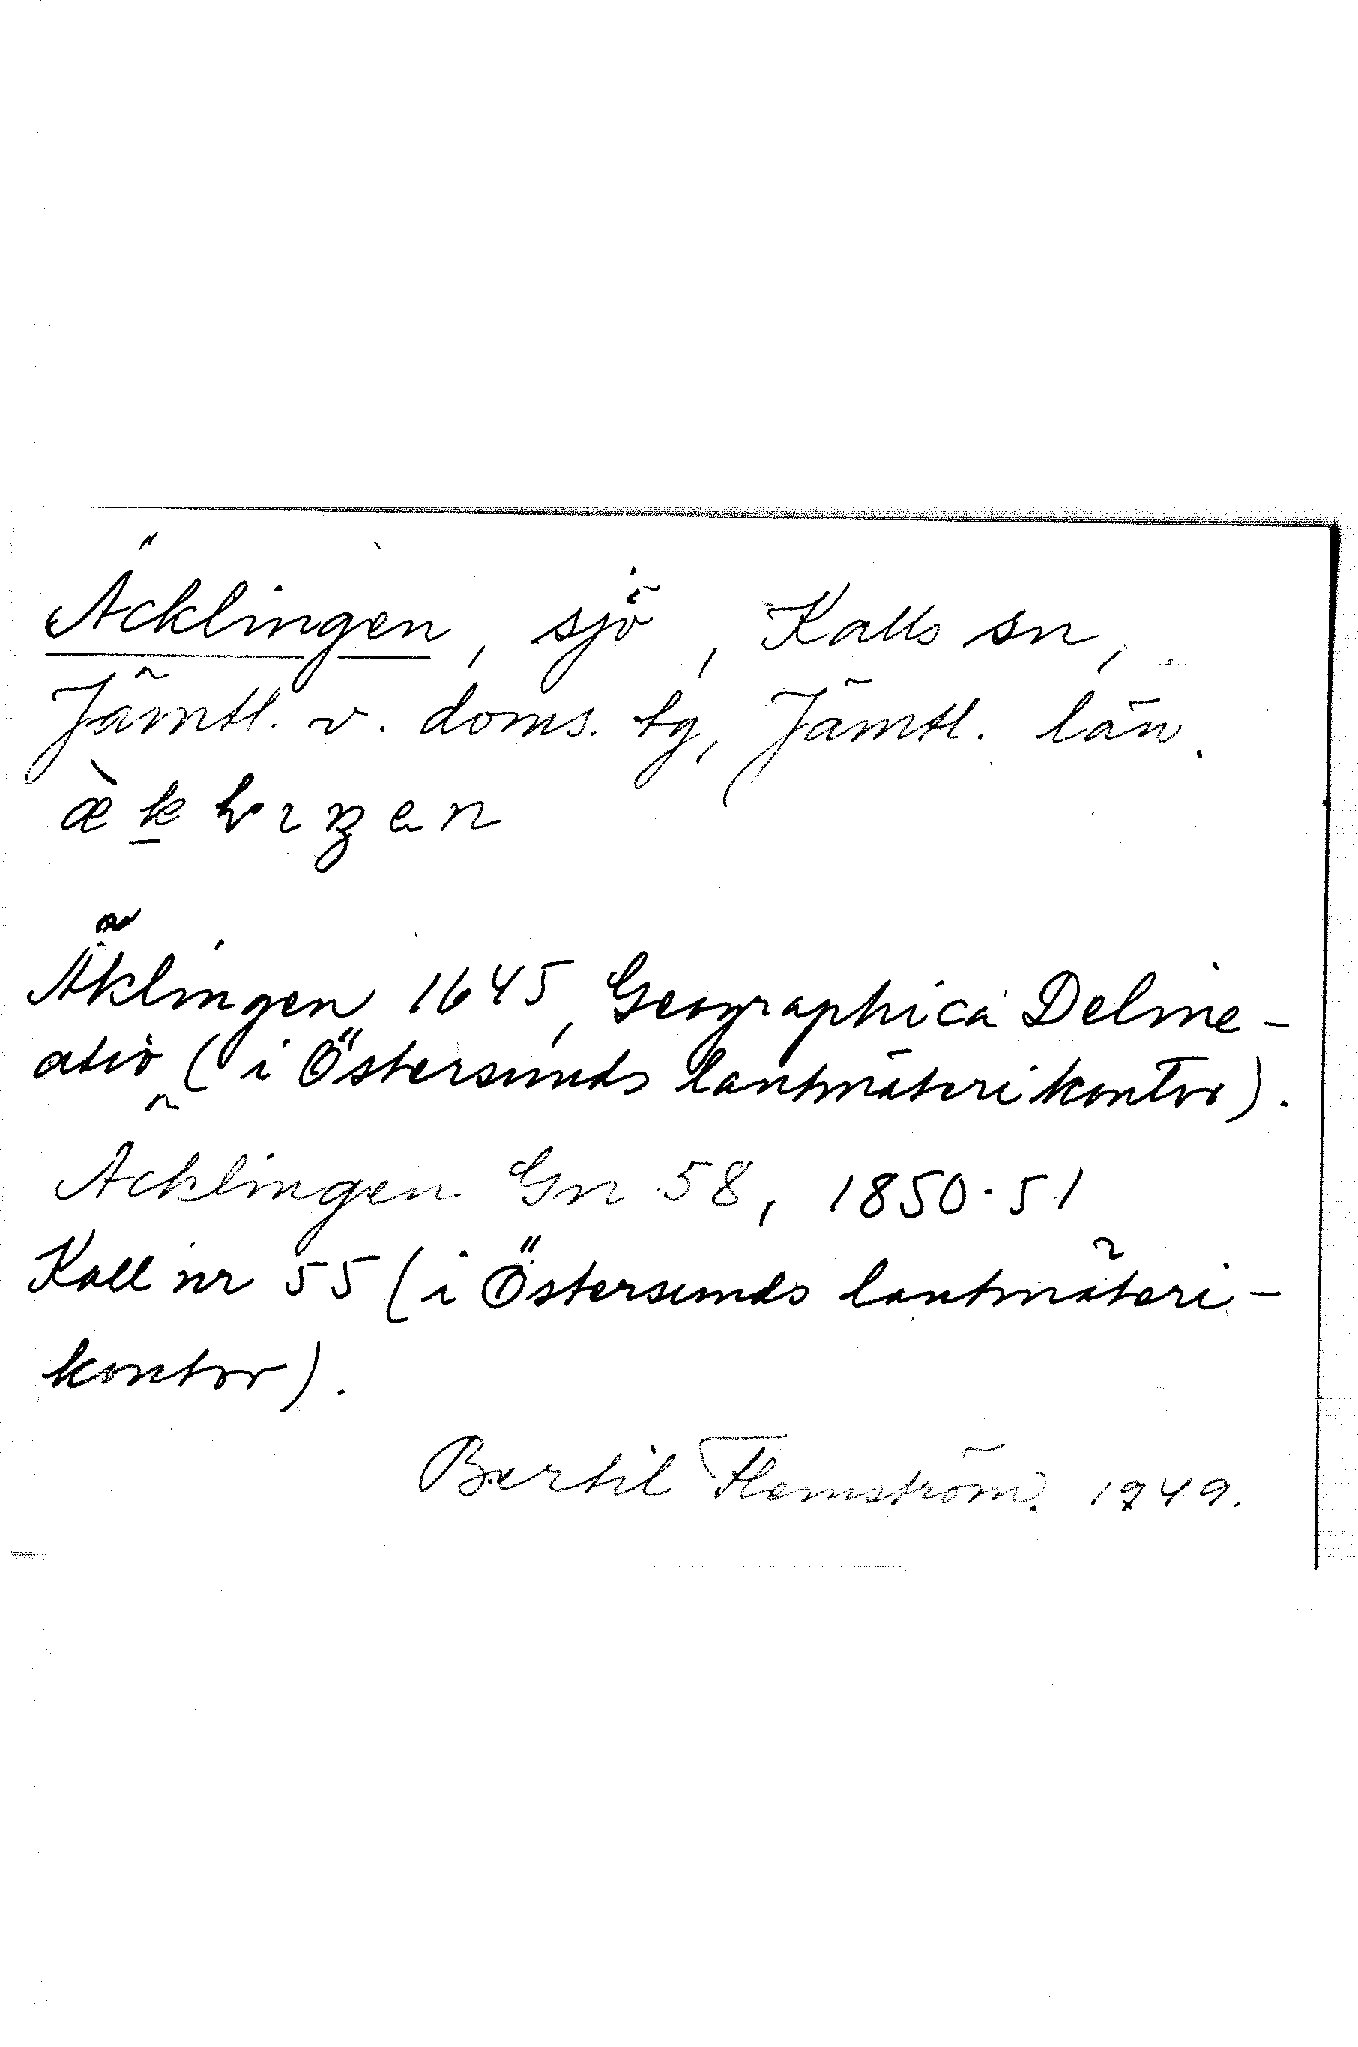 Äcklingen, sjö, Kalls sn,
Jämtl. v. doms. tg, Jämtl. län.
Äklingen 1645, Geographica Deline-
atio (i Östersunds lantmäterikontor).
Äcklingen Gn 58, 1850-51
Kall nr 55 (i Östersunds lantmäteri-
kontor).
Bertil Flemström. 1949.